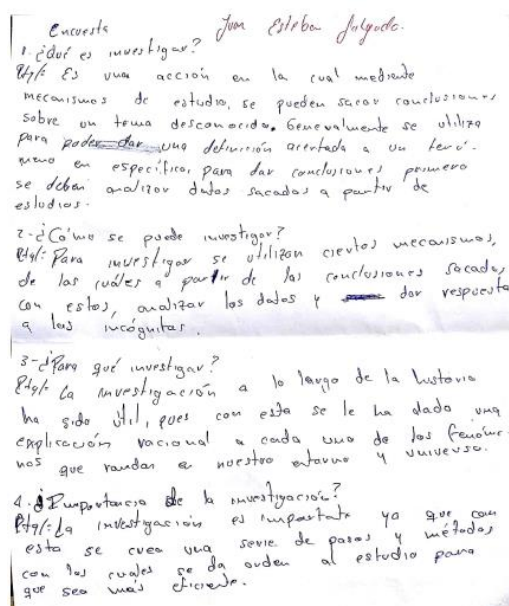 Encuesta Juan Esteban Salgado.
1. ¿Qué es investigar?
Rta/: Es una acción en la cual mediante
mecanismos de estudio, se pueden sacar conclusiones
sobre un tema desconocido. Generalmente se utiliza
para poder dar una definición acertada a un fenó-
meno en específico, para dar conclusiones primero
se deben analizar datos sacados a partir de
estudios.
2-¿Cómo se puede investigar?
Rta/: Para investigar se utilizan ciertos mecanismos,
de las cuáles a partir de las conclusiones sacadas
con estos, analizar los datos y dar respuesta
a las incógnitas.
3-¿Para qué investigar?
Rta/: La investigación a lo largo de la historia
ha sido útil, pues con esta se le ha dado una
explicación racional a cada uno de los fenóme-
nos que rondan a nuestro entorno y universo.
4. Importancia de la investigación?
Rta/: La investigasión es importate ya que con
esta se crea una serie de pasos y métodos
con los cuales se da orden al estudio para
que sea más eficiente.